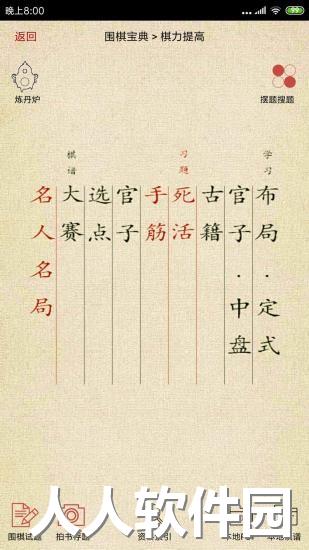 晚上8:00
99
返回
围棋宝典 > 棋力提高
炼丹炉
摆题搜题
学习
布局·定式
官子·中盘
古籍
习题
死活
手筋
官子
选点
棋谱
大赛
名人名局
围棋试题
拍书存题
人人软件园